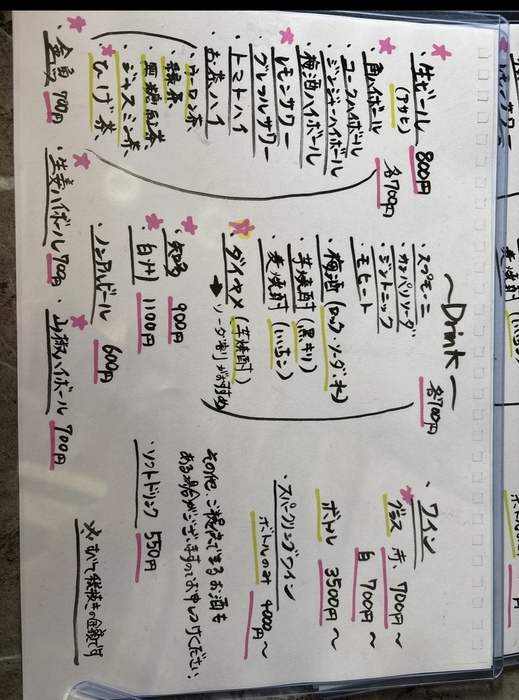 ～Drink～
・生ビール 800円
(アサヒ)
・角ハイボール
・コークハイボール
・ジンジャーハイボール
・梅酒ハイボール
・レモンサワー
・グレフルサワー
・トマトハイ
・お茶ハイ
各700円
(ウーロン茶
緑茶
黒糖紅茶
ジャスミン茶
ひげ茶)
・金魚 700円
・生姜ハイボール 700円
・スプモーニ
カンパリソーダ
ジントニック
モヒート
・梅酒(ロック ソーダ 水)
・芋焼酎(黒キリ)
・麦焼酎(いいちこ)
ダイヤメ(芋焼酎)
→ソーダ割りがおすすめ
各700円
・知多 900円
白州 1100円
・ノンアルビール 600円
ハイボール 700円
・ワイン
グラス 赤 700円～
白 700円～
ボトル 3500円～
・スパークリングワイン
ボトルのみ 4000円～
その他、ご提供できるお酒も
ある場合がございますのでお申しつけください
・ソフトドリンク 550円
※すべて税抜きの金額です